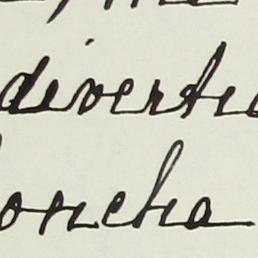 diverti
Concha